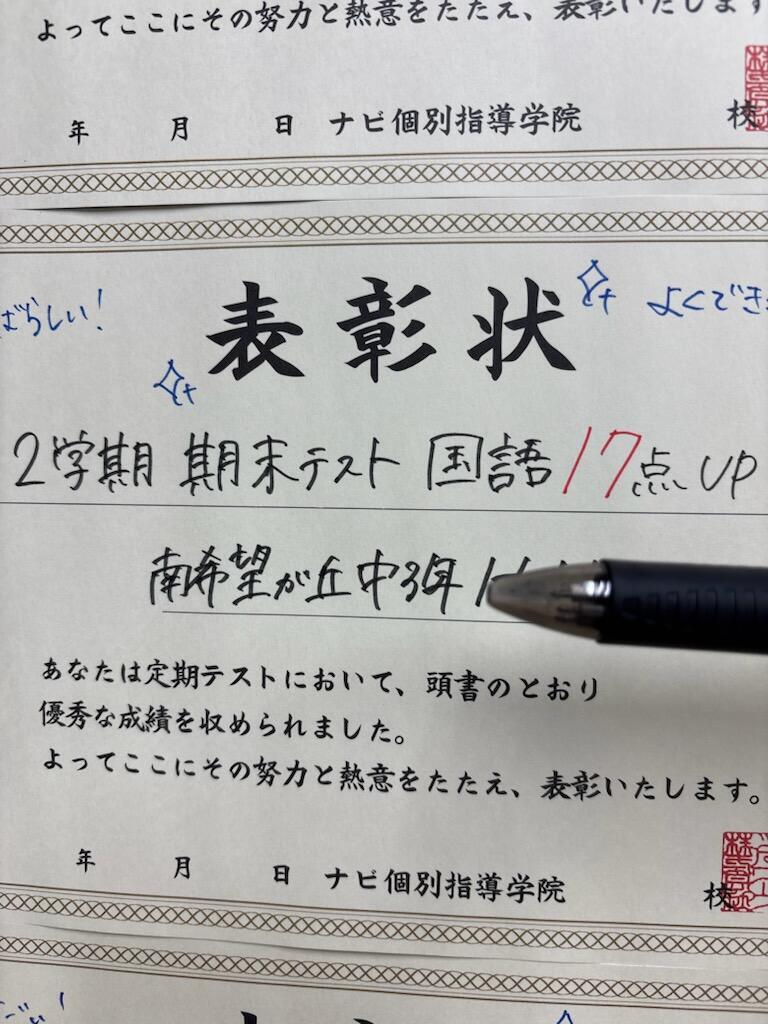 よってここにその努力と熱意をたたえ、表彰いたします
年 月 日 ナビ個別指導学院 校
ばらしい! 表彰状 よくでき
2学期 期末テスト 国語 17点UP
南希望が丘中3年
あなたは定期テストにおいて、頭書のとおり
優秀な成績を収められました。
よってここにその努力と熱意をたたえ、表彰いたします。
年 月 日 ナビ個別指導学院 校